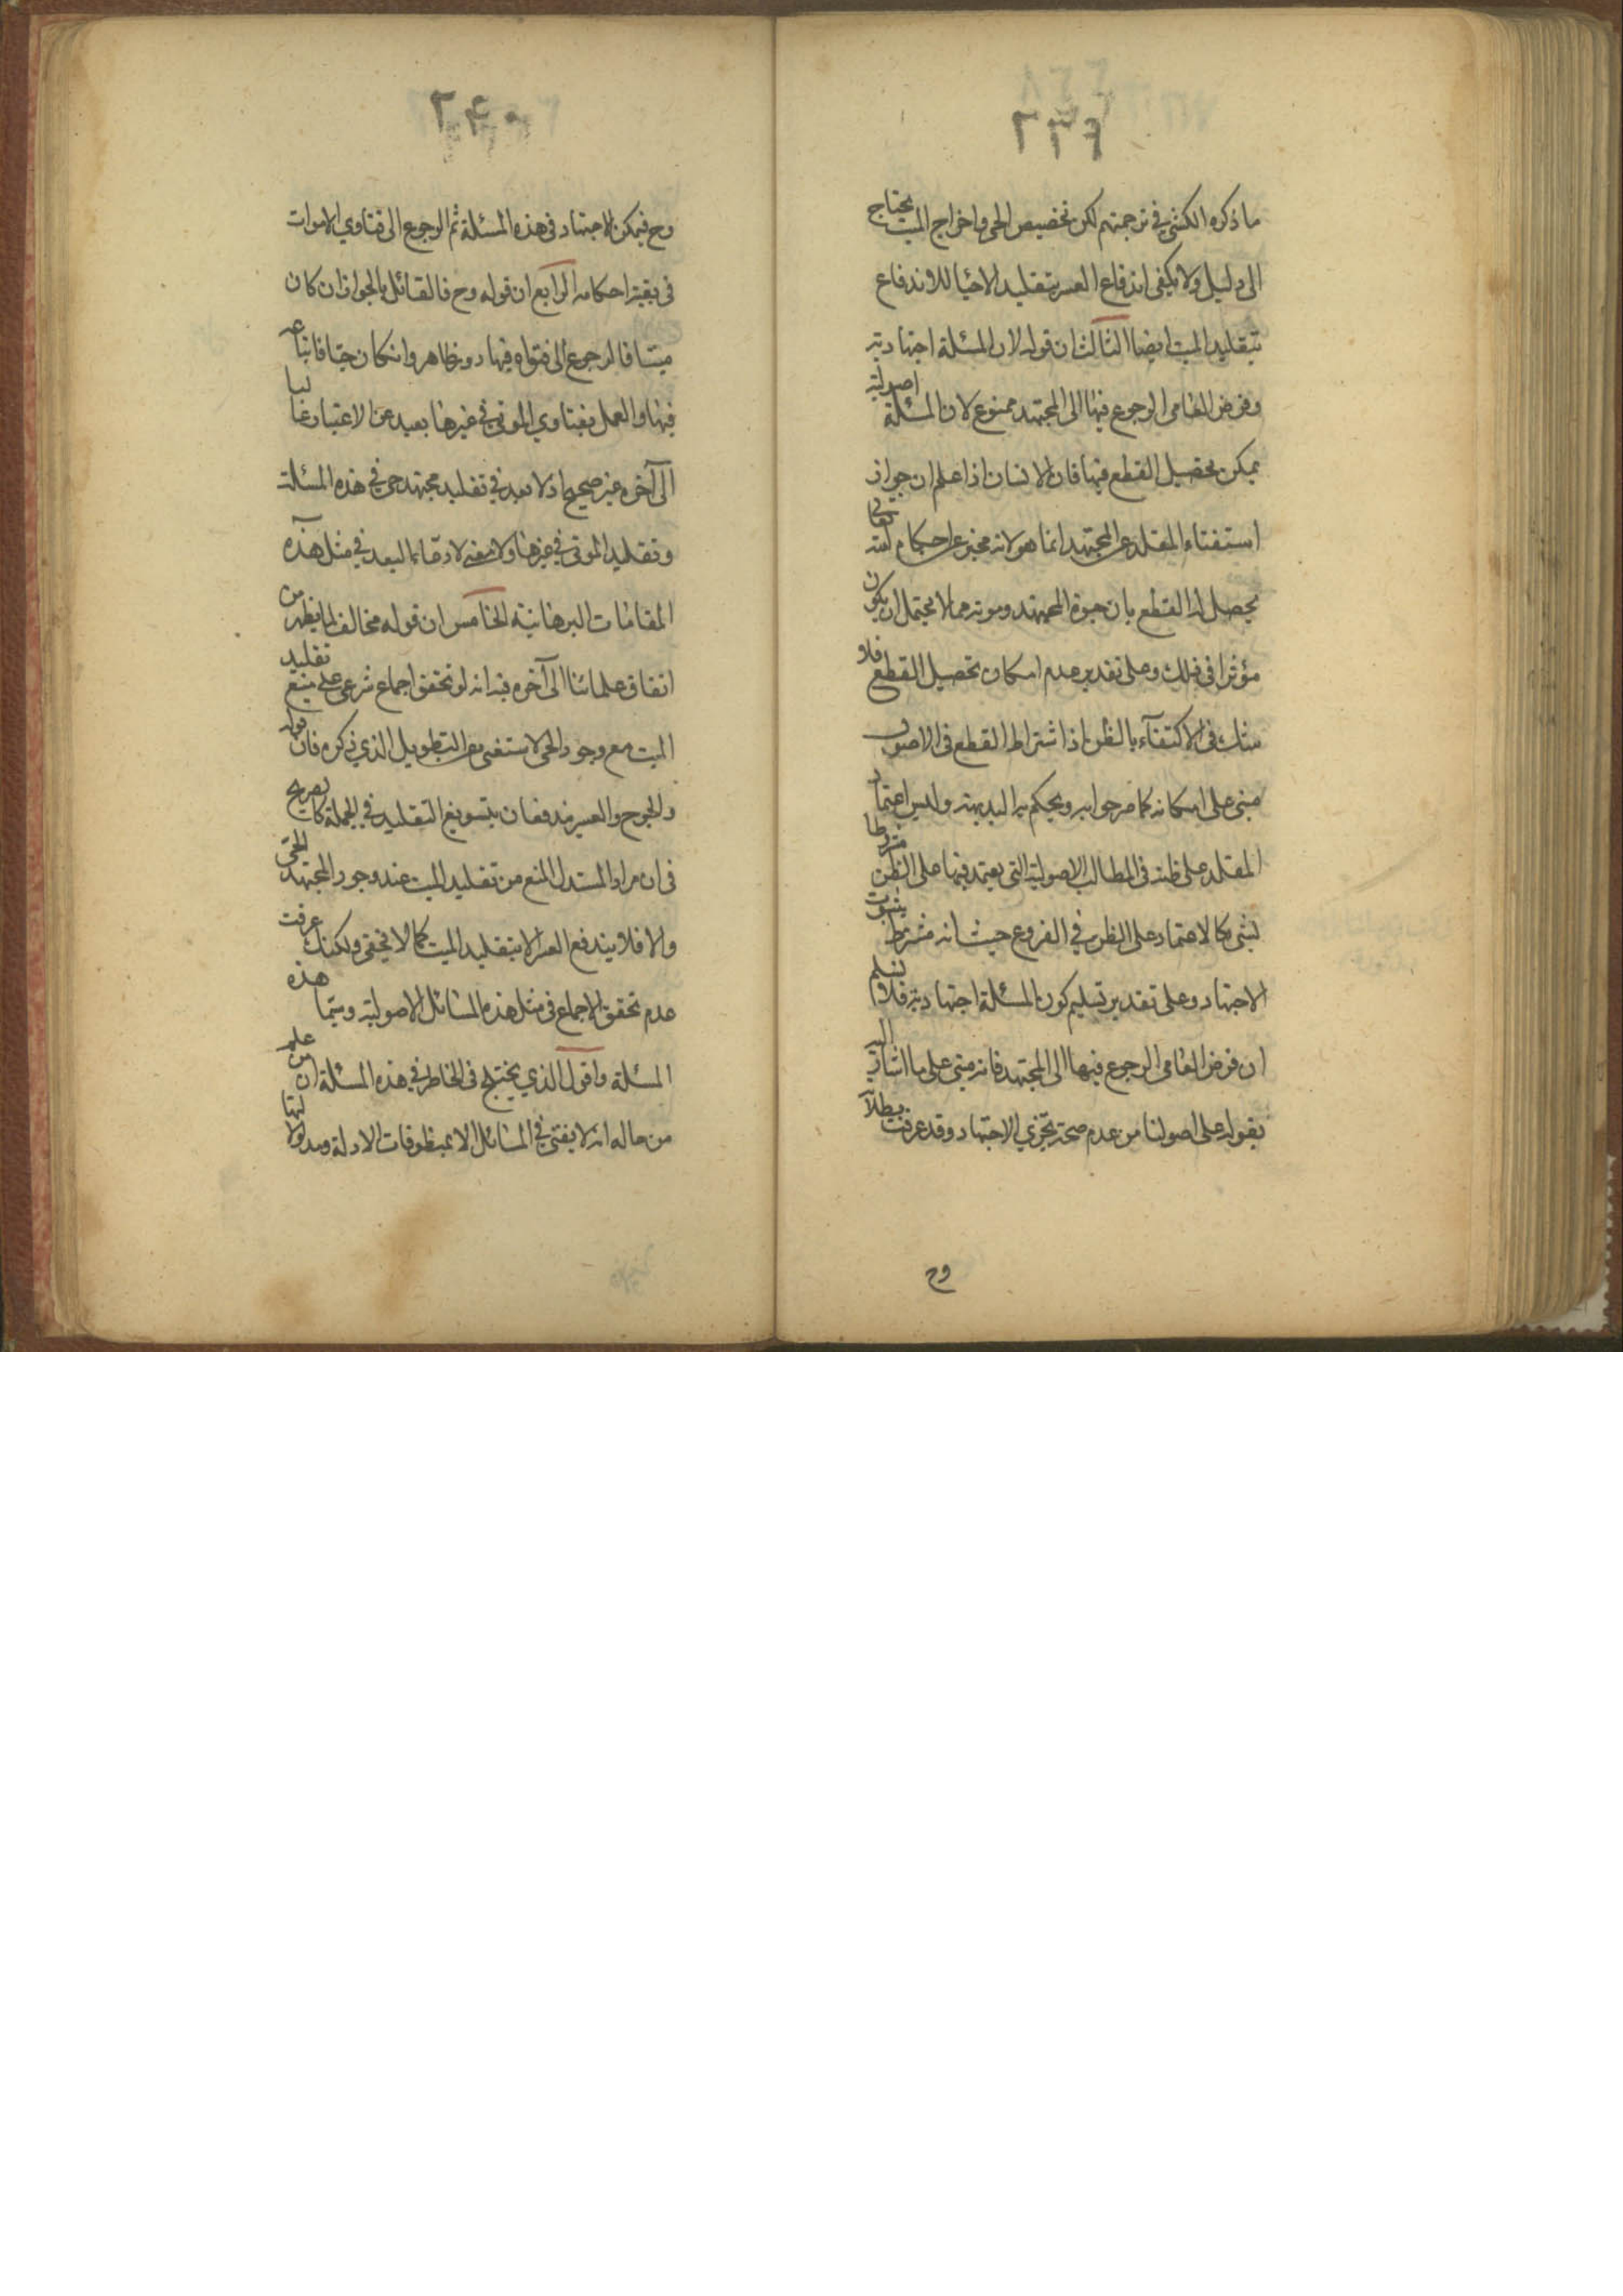 ٢٣٩
ما ذكره الكشي في ترجمتهم لكن تخصيص الحي واخراج الميت يحتاج
الى دليل ولا يكفى اندفاع العسر بتقليد الاحيا للاندفاع
بتقليد الميت ايضا الثالث ان قوله لان المسئلة اجتهادية
وفرض العامى الرجوع فيها الى المجتهد ممنوع لان المسئلة اصولية
يمكن تحصيل القطع فيها فان الانسان اذا علم ان جواز
استفتاء المقلد عن المجتهد انما هو لانه مخبر عن احكام الله تعالى
يحصل له القطع بان حيوة المجتهد وموته مما لا يحتمل ان يكون
مؤثرا في ذلك وعلى تقدير عدم امكان تحصيل القطع فلا
شك فى الاكتفآء بالظن اذ اشتراط القطع فى الاصول
مبنى على امكانه كما صرحوا به ويحكم به البديهة وليس اعتماد
المقلد على ظنه فى المطالب الاصولية التى يعتمد فيها على الظن مشروطا
بشى كالاعتماد على الظن في الفروع حيث انه مشروط بثبوت
الاجتهاد وعلى تقدير تسليم كون المسئلة اجتهادية فلا نسلم
ان فرض العامى الرجوع فيها الى المجتهد فانه مبنى على ما اشار اليه
بقوله على اصولنا من عدم صحة تجزي الاجتهاد وقد عرفت بطلانه
وح
٢٤٠
وح فيمكن الاجتهاد فى هذه المسئلة ثم الرجوع الى فتاوي الاموات
فى بقية احكامه الرابع ان قوله وح فالقائل بالجواز ان كان
ميتا فالرجوع الى فتواه فيها دور ظاهر وان كان حيا فاتباعه
فيها والعمل بفتاوي الموتى في غيرها بعيد عن الاعتبار غالبا
الى آخره غير صحيح اذ لا بعد في تقليد مجتهد حى في هذه المسئلة
وتقليد الموتى في غيرها ولا معنى لادعاء البعد في مثل هذه
المقامات البرهانية الخامس ان قوله مخالف لما يظهر من
اتفاق علمائنا الى آخره فيه انه لو تحقق اجماع شرعى على منع تقليد
الميت مع وجود الحى لاستغنى عن التطويل الذي ذكره فان قوله
والحرج والعسر مندفعان بتسويغ التقليد في الجملة كالصريح
فى ان مراد المستدل المنع من تقليد الميت عند وجود المجتهد الحى
والا فلا يندفع العسر الا بتقليد الميت كما لا يخفى ولكنك عرفت
عدم تحقق الاجماع فى مثل هذه المسائل الاصولية وسيما هذه
المسئلة واقول الذي يختلج فى الخاطر في هذه المسئلة ان من علم
من حاله انه لا يفتى في المسائل الا بمنطوقات الادلة ومدلولاتها